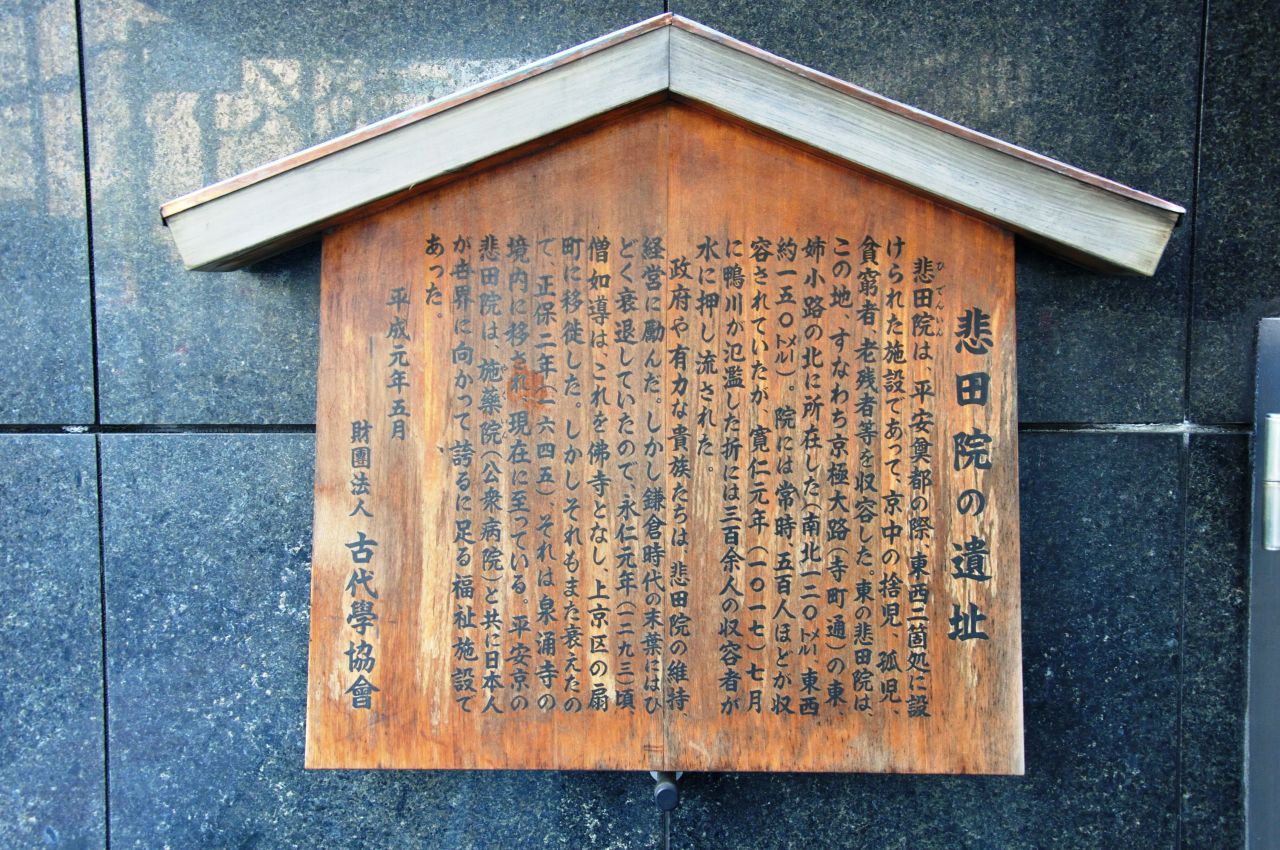 悲田院の遺址
悲田院は、平安奠都の際、東西二箇処に設
ひでんいん
けられた施設であって、京中の捨児、孤児、
貧窮者、老残者等を収容した。東の悲田院は、
この地、すなわち京極大路(寺町通)の東、
姉小路の北に所在した(南北一二〇㍍、東西
約一五〇㍍)。院には常時、五百人ほどが収
容されていたが、寛仁元年(一〇一七)七月
に鴨川が氾濫した折には三百余人の収容者が
水に押し流された。
政府や有力な貴族たちは、悲田院の維持、
経営に勵んだ。しかし鎌倉時代の末葉にはひ
どく衰退していたので、永仁元年(一二九三)頃、
僧如導は、これを佛寺となし、上京区の扇
町に移徙した。しかしそれもまた衰えたの
て、正保二年(一六四五)、それは泉涌寺の
境内に移され、現在に至っている。平安京の
悲田院は、施藥院(公衆病院)と共に日本人
が世界に向かって誇るに足る福祉施設て
あった。
平成元年五月
財團法人 古代學協會